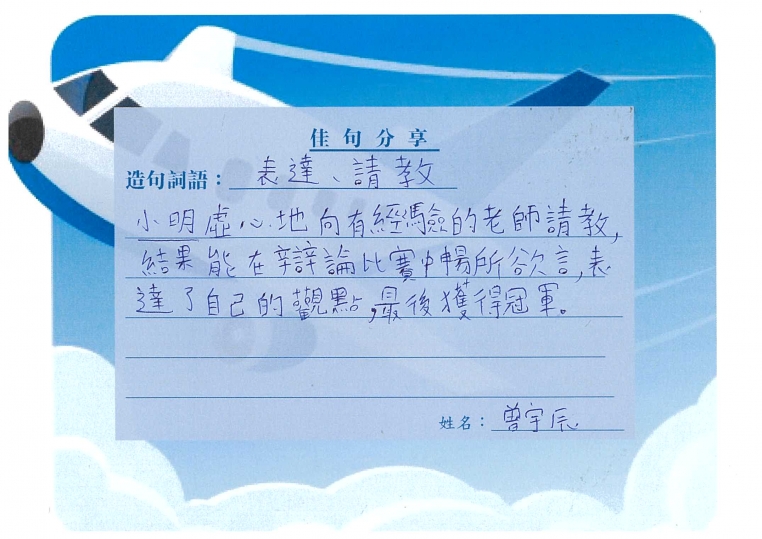 佳句分享
造句詞語：表達、請教
小明虛心地向有經驗的老師請教，
結果能在辯論比賽中暢所欲言，表
達了自己的觀點，最後獲得冠軍。
姓名：曾宇辰